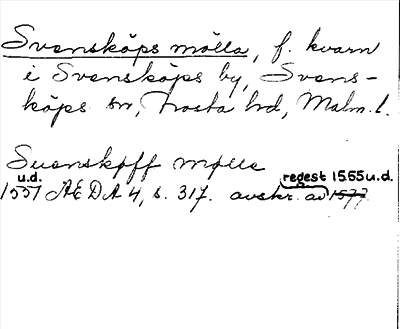 Svensköps mölla, f. kvarn
i Svensköps by, Svens-
köps sn, Frosta hd, Malm. l.
Suenskøff mølle
u.d. regest 1565 u.d.
1557 ÆDA 4, s. 317. avskr. av 1577